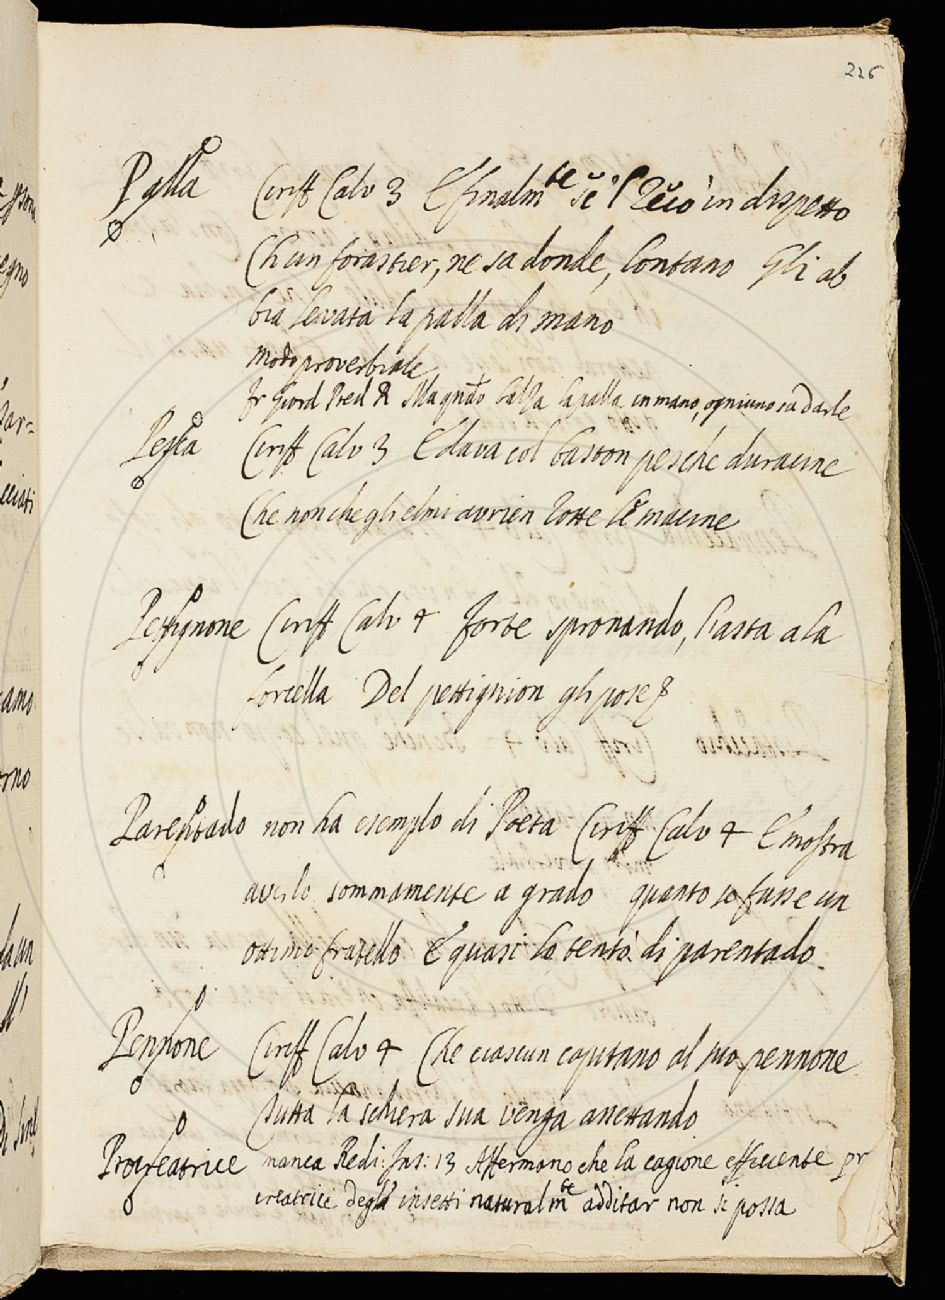 226
Palla Ciriff Calv 3 E finalmte se l recò in dispetto
Ch'un forastier, ne sa donde, lontano Gli ab
bia levata la palla di mano
modo proverbiale
Fr Giord Pred R Magnato balza la palla in mano, ogniuno sa darle
Pesca Ciriff Calv 3 E dava col baston pesche duracine
Che non che gli elmi avrien rotte le macine
Pettignone Ciriff Calv 4 forte spronando, l'asta a la
forcella Del pettignion gli pose
Parentado non ha esemplo di Poeta Ciriff Calv 4 E mostra
averlo sommamente a grado quanto se fusse un
ottimo fratello E quasi lo tentò di parentado
Pennone Ciriff Calv 4 Che ciascun capitano al suo pennone
tutta la schiera sua venga assettando
Procreatrice manca Redi: Ins: 13 Affermano che la cagione efficiente pr
creatrice degl' insetti naturalmte additar non si possa